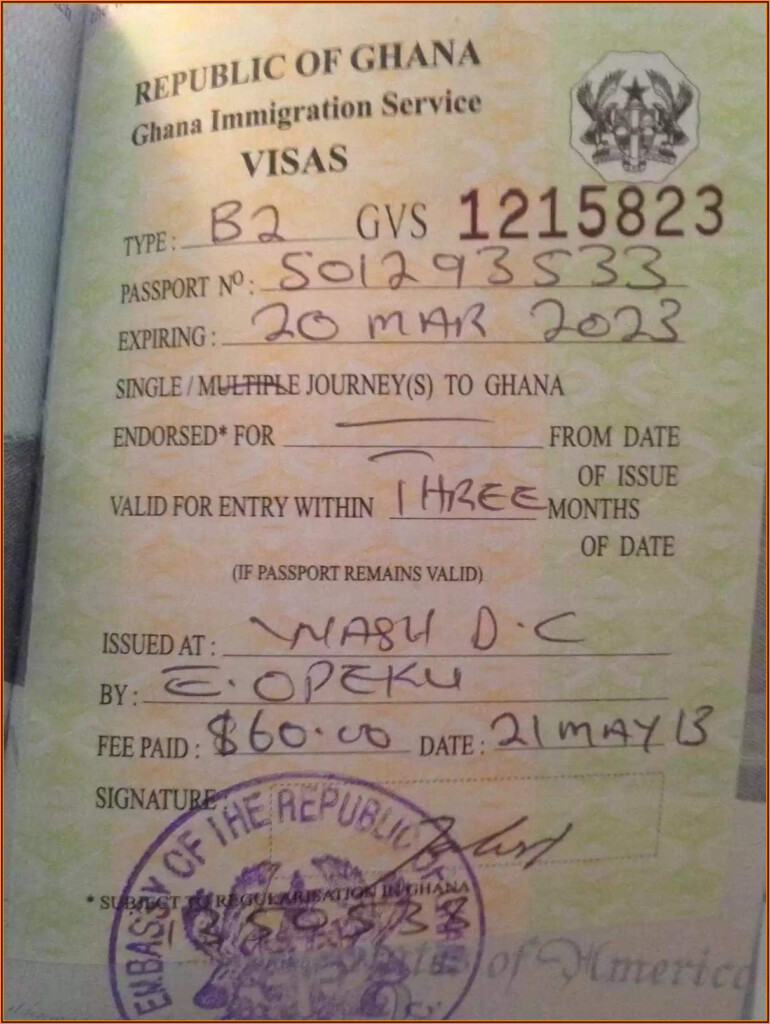 REPUBLIC OF GHANA
Ghana Immigration Service
VISAS
TYPE: B2 GVS 1215823
PASSPORT Nº: 501293533
EXPIRING: 20 MAR 2023
SINGLE / MULTIPLE JOURNEY(S) TO GHANA
ENDORSED* FOR FROM DATE
OF ISSUE
VALID FOR ENTRY WITHIN THREE MONTHS
OF DATE
(IF PASSPORT REMAINS VALID)
ISSUED AT: WASH D.C
BY: E. OPEKU
FEE PAID: $60.00 DATE: 21 MAY 13
SIGNATURE:
EMBASSY OF THE REPUBLIC OF
* SUBJECT TO REGULARISATION IN GHANA
States of America